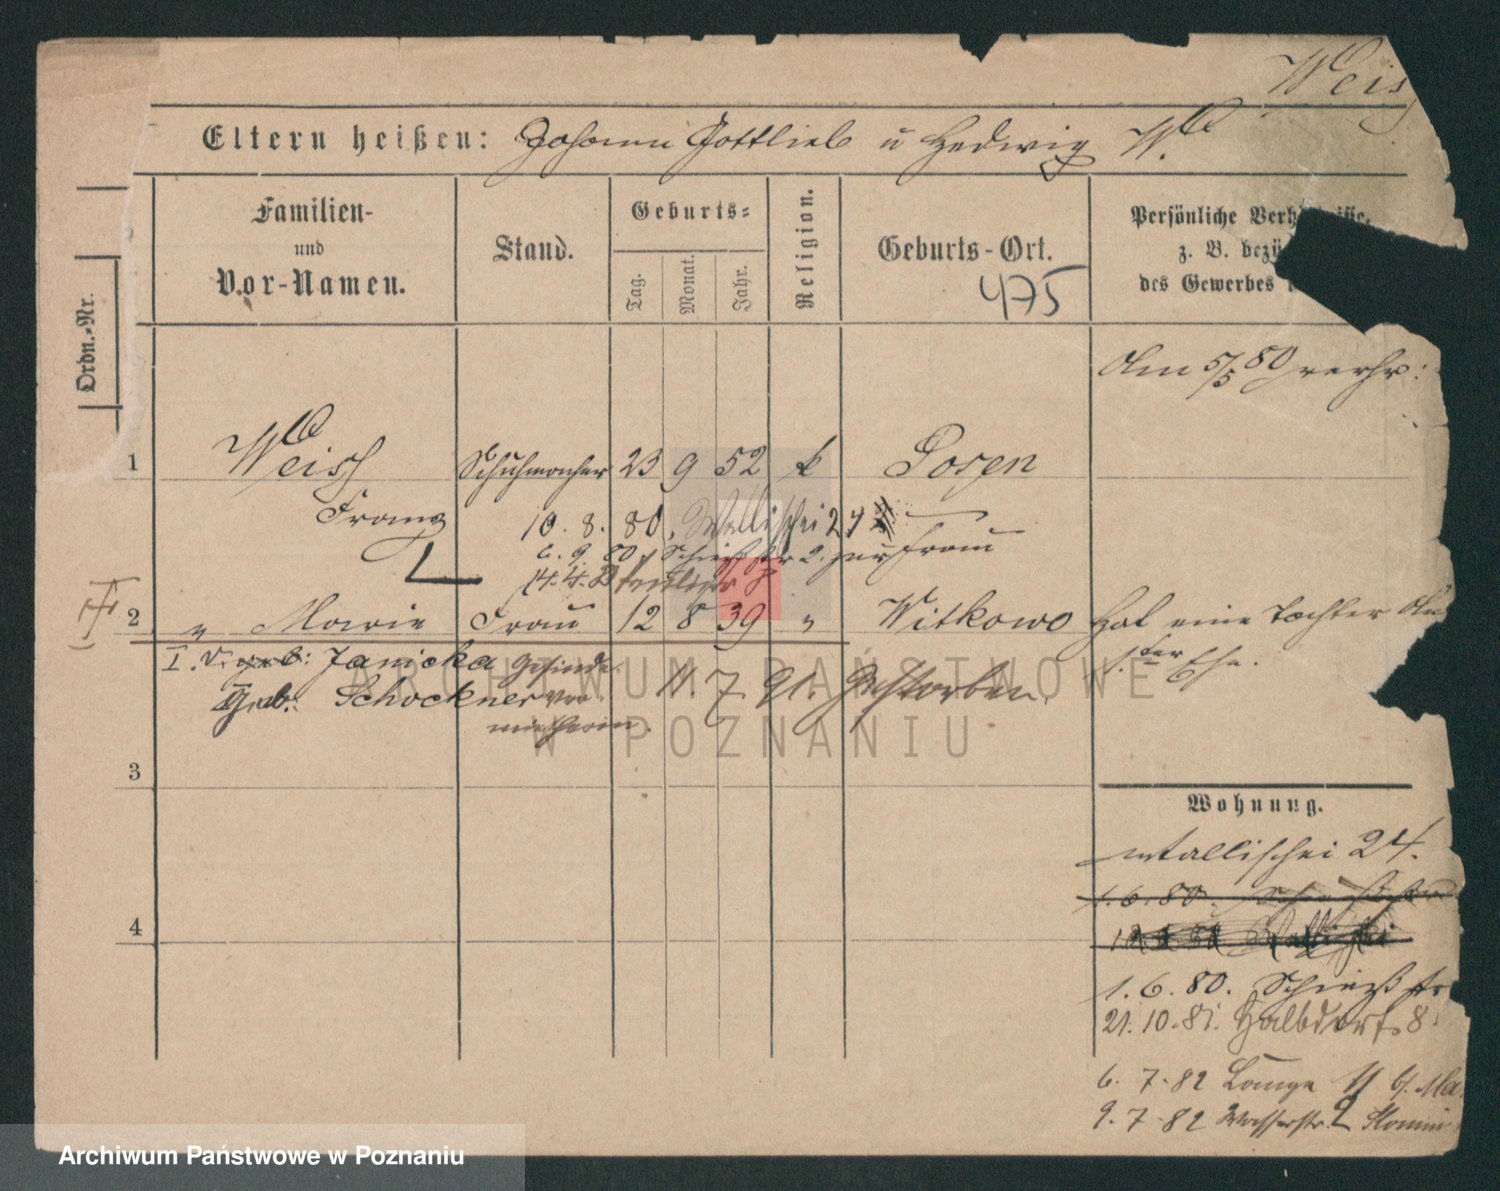 Weis
Eltern heißen: Johann Gottlieb u Hedwig W.
Ordn.-Nr.
Familien-
und
Vor-Namen.
Stand.
Geburts-
Tag.
Monat.
Jahr.
Religion.
Geburts-Ort.
475
Persönliche
z. B.
des Gewerbes
Am 5/5 80 verhr:
1 Weiss Schuhmacher 23 9 52 k Posen
Franz
10. 8. 80. Wallischei 24
6. 9. 80 Schießstr 2. zur Frau
14. 4.
2 " Marie Frau 12 8 39 " Witkowo Hat eine Tochter
1. ter Ehe.
I. v. geb: Janicka Gesinde
Geb. Schockner ver
mietherin.
11. 7. 91. Gestorben.
3
4
Wohnung.
Wallischei 24.
1. 6. 80.
1. 6. 80. Schießstr
21. 10. 81. Halbdorfs 8
6. 7. 82 Lange 11 b/. Ma
9. 7. 82 Wasserstr. 2
ARCHIWUM PAŃSTWOWE
W POZNANIU
Archiwum Państwowe w Poznaniu